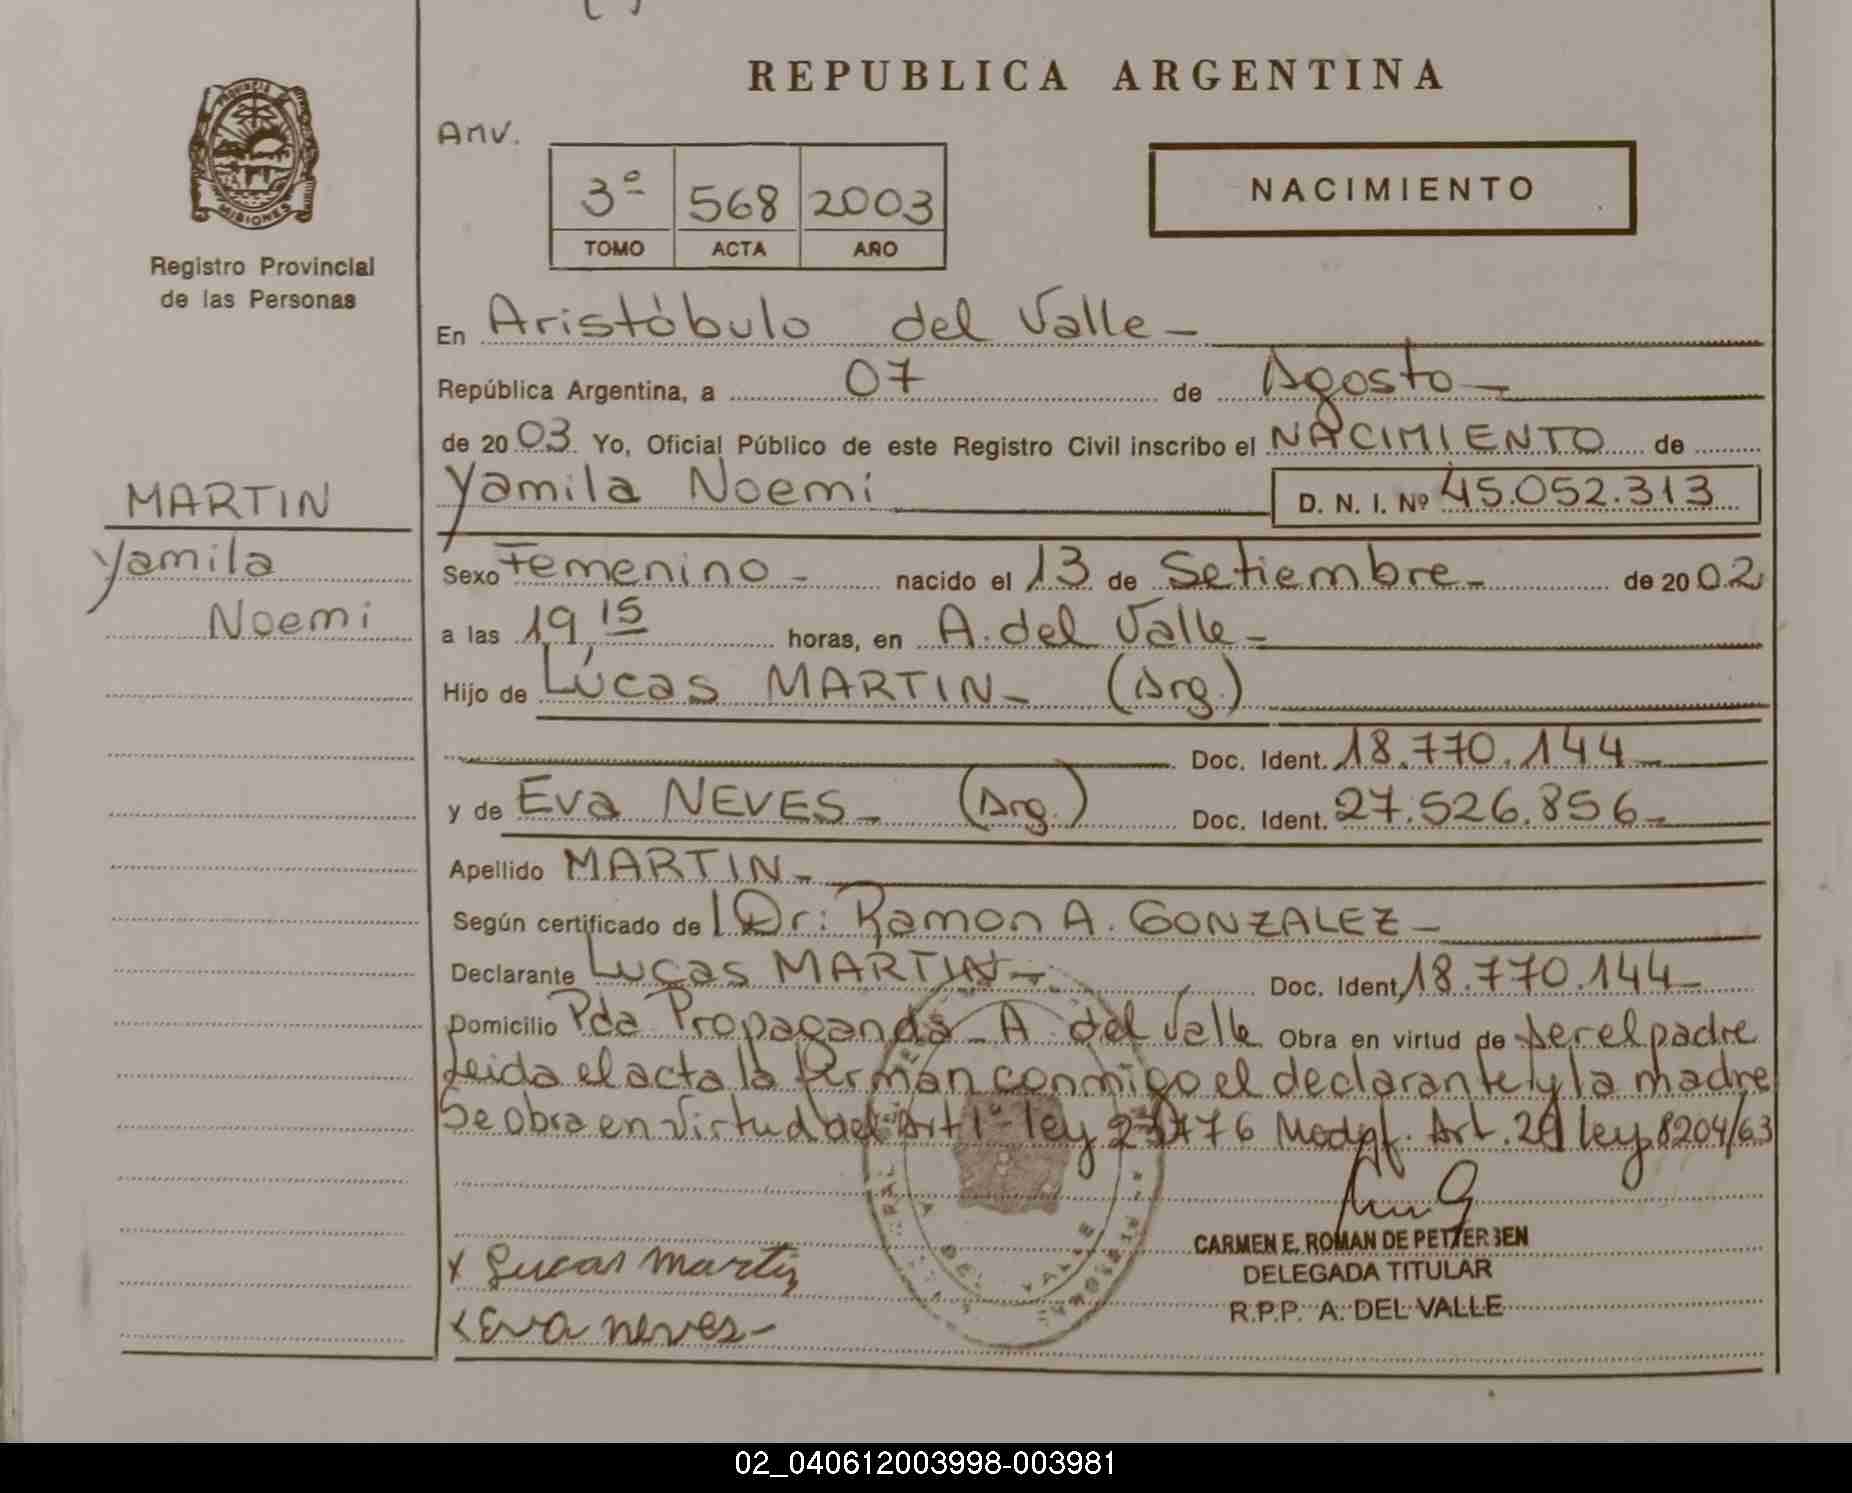 REPUBLICA ARGENTINA
PROVINCIA DE
MISIONES
Registro Provincial
de las Personas
Anv.
3º 568 2003
TOMO ACTA AÑO
NACIMIENTO
En Aristóbulo del Valle
República Argentina, a 07 de Agosto
de 2003. Yo, Oficial Público de este Registro Civil inscribo el NACIMIENTO de
MARTIN
Yamila
Noemi
Yamila Noemi D. N. I. Nº 45.052.313
Sexo Femenino nacido el 13 de Setiembre de 2002
a las 19 15 horas, en A. del Valle
Hijo de Lucas MARTIN (Arg.)
Doc. Ident. 18.770.144
y de Eva NEVES (Arg.) Doc. Ident. 27.526.856
Apellido MARTIN
Según certificado de Dr: Ramon A. GONZALEZ
Declarante Lucas MARTIN Doc. Ident. 18.770.144
Domicilio Pda Propaganda A. del Valle Obra en virtud de ser el padre
Leida el acta la firman conmigo el declarante y la madre
Se obra en virtud del Art 1º ley 23776 Modif. Art. 29 ley 8204/63
x Lucas Martin
x Eva neves
CARMEN E. ROMAN DE PETTERSEN
DELEGADA TITULAR
R.P.P. A. DEL VALLE
02_040612003998-003981